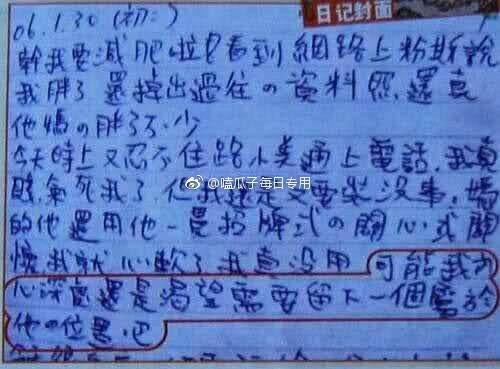 日记封面
06.1.30 (初二)
幹我要減肥啦 看到網路上粉斯說
我胖了 還摔出過往の資料照 還真
他媽の胖了不少
今天晚上又忍不住路小美通上電話,我真
氣死我了 但我還是又要裝沒事,聽
的他還用他一貫招牌式の關心式關
懷我就心軟了 我真沒用 可能我內
心深處還是渴望需要留下一個屬於
他の位置吧
@嗑瓜子每日专用